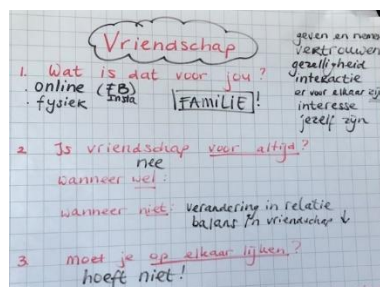 Vriendschap
geven en
vertrouwen
gezelligheid
interactie
er voor elkaar zijn
interesse
jezelf zijn
1. Wat is dat voor jou?
. online (FB)
Insta
. fysiek
FAMILIE!
2. Is vriendschap voor altijd?
nee
wanneer wel:
wanneer niet: verandering in relatie
balans in vriendschap ↓
3. moet je op elkaar lijken?
hoeft niet!